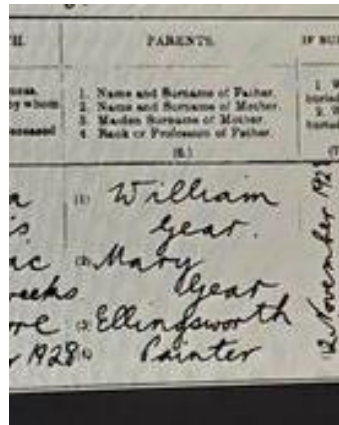 H.
PARENTS.
IF BU
1. Name and Surname of Father.
2. Name and Surname of Mother.
3. Maiden Surname of Mother.
4. Rank or Profession of Father.
by whom
deceased
(6.)
(7
(1) William
Gear.
(2) Mary
Gear
eeks
(3) Ellingsworth
1928 (4) Painter
12 November 1928